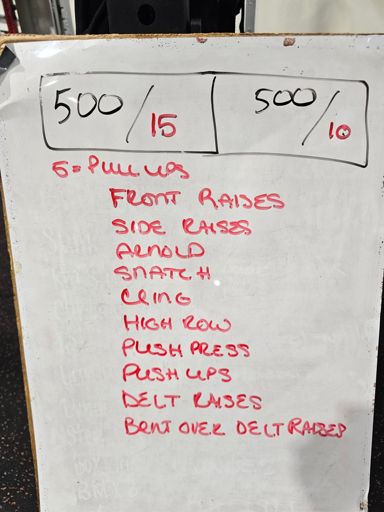 500/15 500/10
5=PULL UPS
FRONT RAISES
SIDE RAISES
ARNOLD
SNATCH
CLING
HIGH ROW
PUSH PRESS
PUSH UPS
DELT RAISES
BENT OVER DELT RAISES